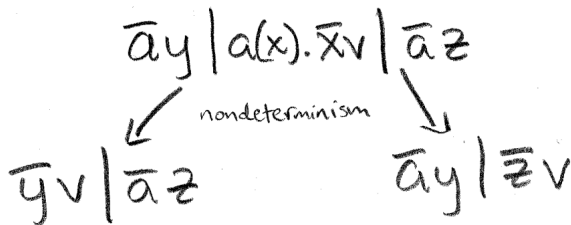 a̅y | a(x).x̅v | a̅z
nondeterminism
y̅v | a̅z
a̅y | z̅v